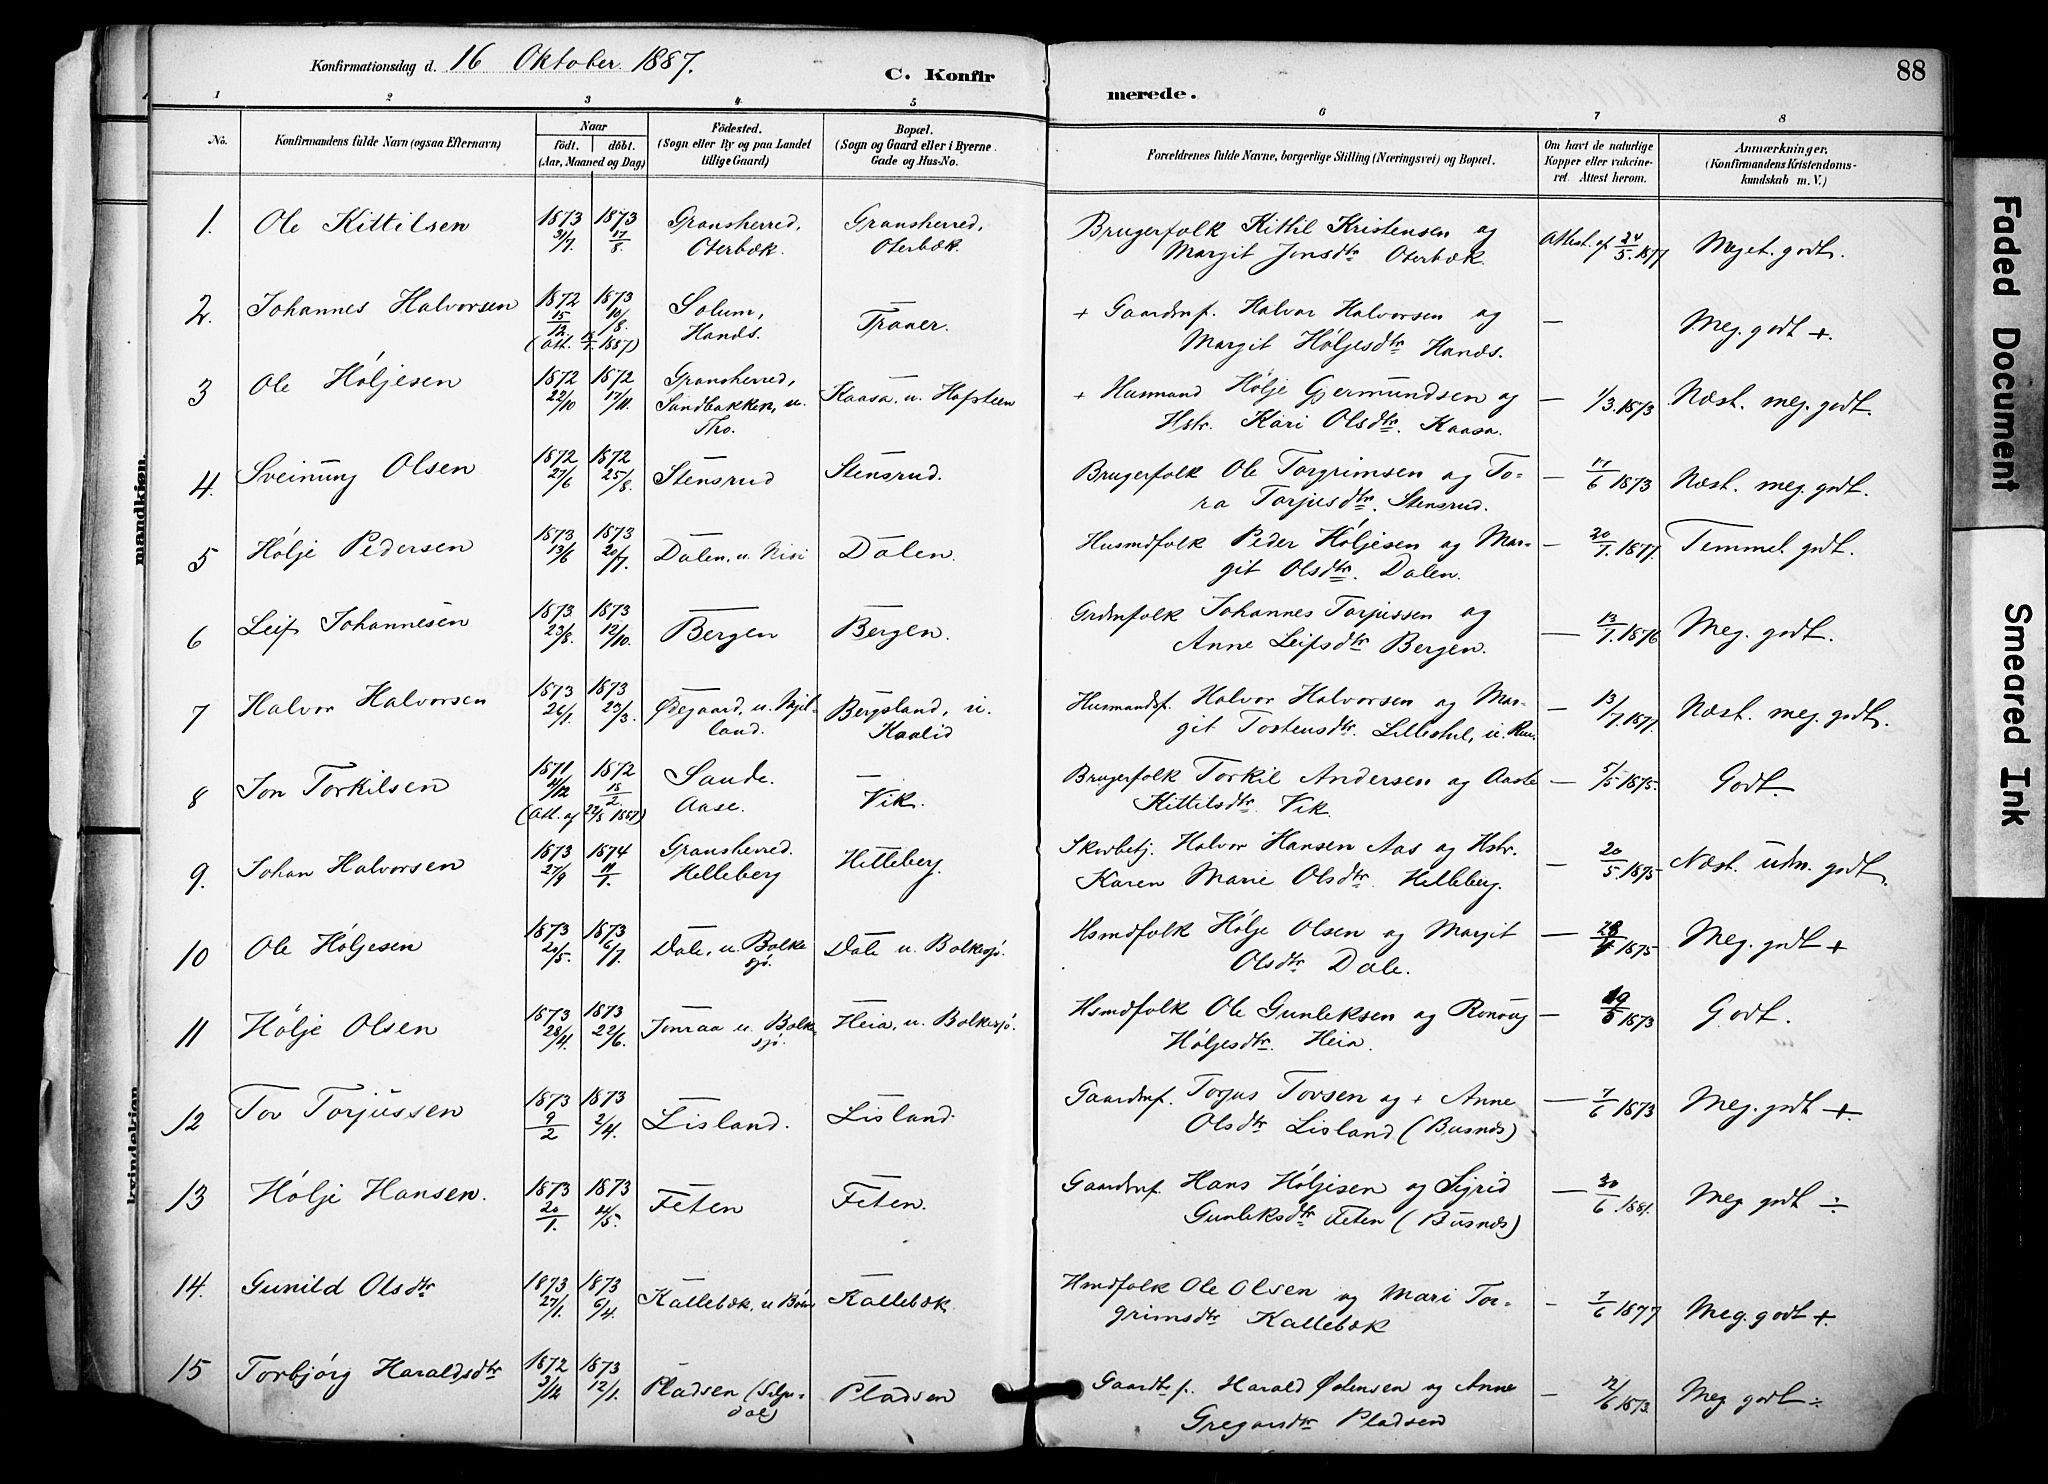 Konfirmationsdag d. 16 Oktober 1887.
C. Konfirmerede.
88
1 2 3 4. 5 6 7 8
No.
Konfirmandens fulde Navn (ogsaa Efternavn)
Naar
födt. döbt.
(Aar, Maaned og Dag)
Födested.
(Sogn eller By og paa Landet
tillige Gaard)
Bopæl.
(Sogn og Gaard eller i Byerne
Gade og Hus-No.
Forældrenes fulde Navne, borgerlige Stilling (Næringsvei) og Bopæl.
Om havt de naturlige
Kopper eller vakcine-
ret. Attest herom.
Anmærkninger,
(Konfirmandens Kristendoms-
kundskab m. V.)
mandkjøn.
kvindekjøn
1. Ole Kittilsen 1873 31/7. 1873 17/8. Gransherred, Oterbæk. Gransherred, Oterbæk. Brugerfolk Kittil Kristensen og
Margit Jonsdtr Oterbæk. Attest. af 24/5. 1877 Meget. godt.
2. Johannes Halvorsen 1872 15/12. 1873 10/8. Solum, Hands. Traaer. + Gaardmf. Halvor Halvorsen og
Margit Høljesdtr Hands. — Meg. godt +.
3 Ole Høljesen 1872 22/10 1872 17/11. Gransherred, Sandbakken, u. Tho. Kaasa, u. Hafsteen + Husmand Hølje Gjermundsen og
Hstr. Kari Olsdtr. Kaasa. — 1/3. 1873 Næst. meg. godt.
4. Sveinung Olsen 1872 27/6 1872 25/8. Stensrud Stensrud. Brugerfolk Ole Torgrimsen og To-
ra Torjusdtr. Stensrud. — 17/6 1873 Næst. meg. godt.
5 Hølje Pedersen 1873 13/6 1873 20/7. Dalen, u. Nisi Dalen. Husmdfolk Peder Høljesen og Mar-
git Olsdtr. Dalen. — 20/7. 1877. Temmel. godt.
6 Leif Johannesen 1873 23/8. 1873 12/10. Bergen Bergen. Grdmfolk Johannes Torjussen og
Anne Leifsdtr Bergen. — 13/7. 1876 Meg. godt.
7 Halvor Halvorsen 1873 26/1. 1873 23/3. Ødegaard, u. Mjelland. Bergsland, u. Kaalid Husmandsf. Halvor Halvorsen og Mar-
git Tostensdtr. Lillestul, u. — 13/7. 1877. Næst. meg. godt.
8 Jon Torkilsen 1871 1872 15/2. (Att. af 22/8 1887) Sande. Aase. Vik. Brugerfolk Torkil Andersen og Aaste
Kittilsdtr. Vik. — 5/5 1875. Godt.
9. Johan Halvorsen 1873 27/9 1874 11/1. Gransherred. Helleberg Helleberg. Skrbetj. Halvor Hansen Aas og Hstr.
Karen Marie Olsdtr. Helleberg. — 20/5. 1875 Næst. udm. godt.
10 Ole Høljesen 1873 21/5. 1873 6/7. Dale, u. Bolkesjø. Dale u. Bolkesjø. Hsmdfolk Hølje Olsen og Margit
Olsdtr Dale. — 1875 Meg. godt +
11 Hølje Olsen 1873 28/4. 1873 22/6. Jonraa u. Bolkesjø. Heia, u. Bolkesjø. Hsmdfolk Ole Gunleksen og Ronnaug
Høljesdtr. Heia. — 1873 Godt.
12 Tov Torjussen 1873 9/2 1873 2/4. Lisland. Lisland. Gaardmf. Torjus Tovsen og + Anne
Olsdtr Lisland (Busnæs) — 7/6 1873 Meg. godt +
13 Hølje Hansen. 1873 20/1. 1873 Feten Feten. Gaardmf. Hans Høljesen og Sigrid
Gunleksdtr Feten (Busnæs) — 30/6. 1881. Meg godt ÷
14. Gunild Olsdtr 1873 27/1. 1873 6/4. Kallebæk, u Kallebæk. Hmdfolk Ole Olsen og Mari Tor-
grimsdtr Kallebæk — 7/6 1877 Meg. godt +.
15 Torbjørg Haraldsdtr 1872 3/12 1873 12/1. Pladsen Pladsen Gaardmf. Harald og Anne
Gregardtr Pladsen — 1873. Meg godt ÷
Faded Document
Smeared Ink